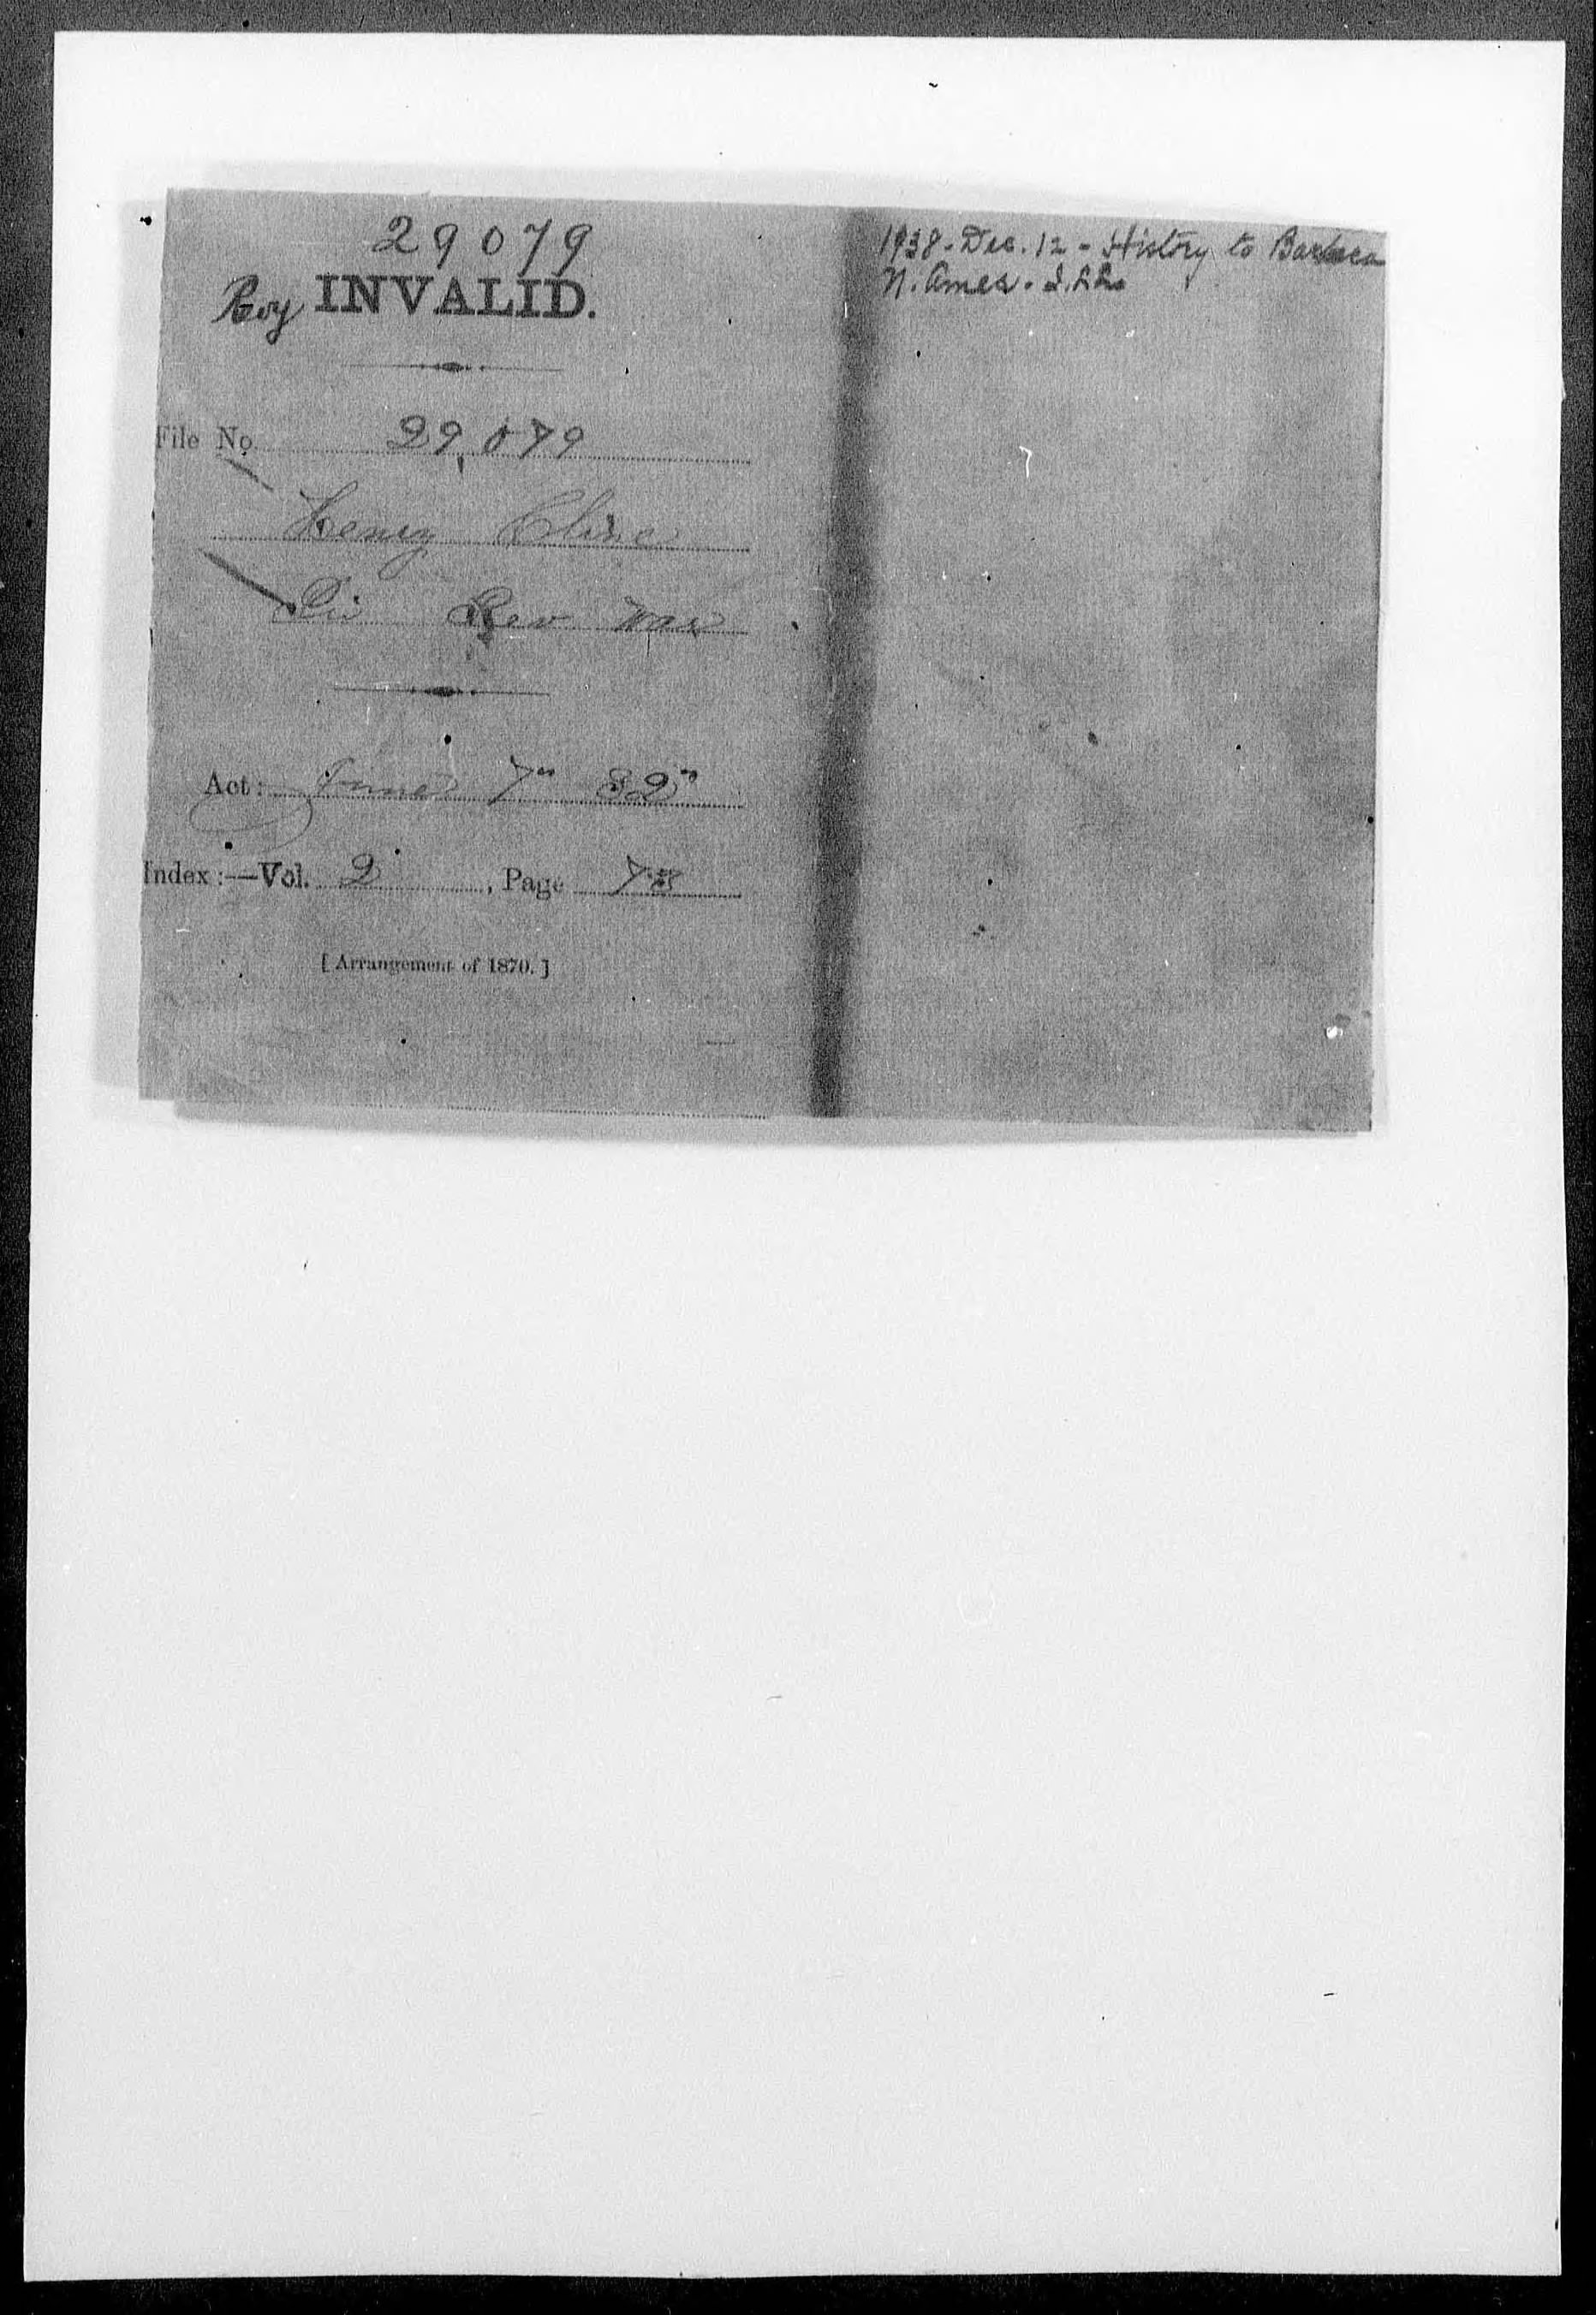 29079
INVALID.
File No. 29,079
Henry Cline
Rev War
Act: June 7" 32"
Index:—Vol. 2, Page 78
[Arrangement of 1870.]
1938-Dec. 12-History to Barbara
N. Ames.